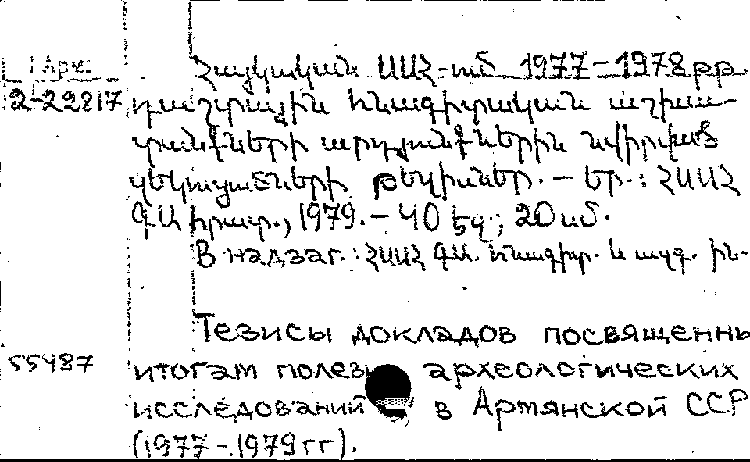 1 Арм.
Հայկական ՍՍՀ-ում 1977-1978 թթ
2-22817 դաշտային հնագիտական աշխա-
տանքների արդյունքներին նվիրված
զեկուցումների թեզիսներ. - Եր.: ՀՍՍՀ
ԳԱ հրատ., 1979. - 40 էջ; 20 սմ.
В надзаг.: ՀՍՍՀ ԳԱ. Հնագիտ. և ազգ. ին-
Тезисы докладов посвященны
55487 итогам полев археологических
исследований в Армянской ССР
(1977-1979 гг).